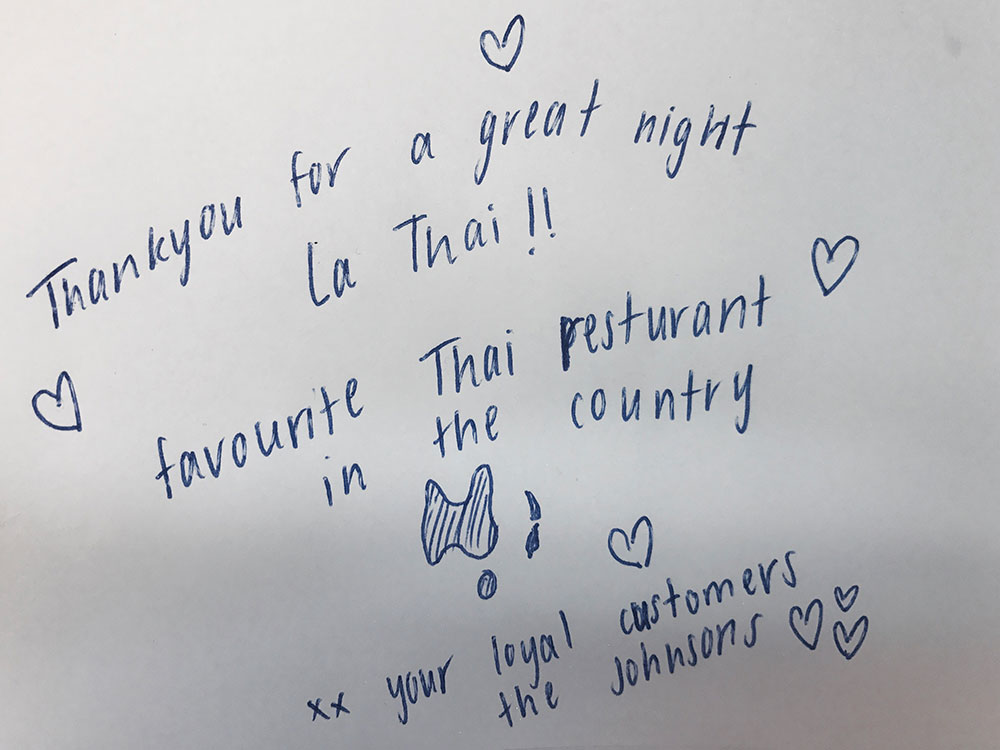 Thankyou for a great night
La Thai!!
favourite Thai resturant
in the country
xx your loyal customers
the Johnsons